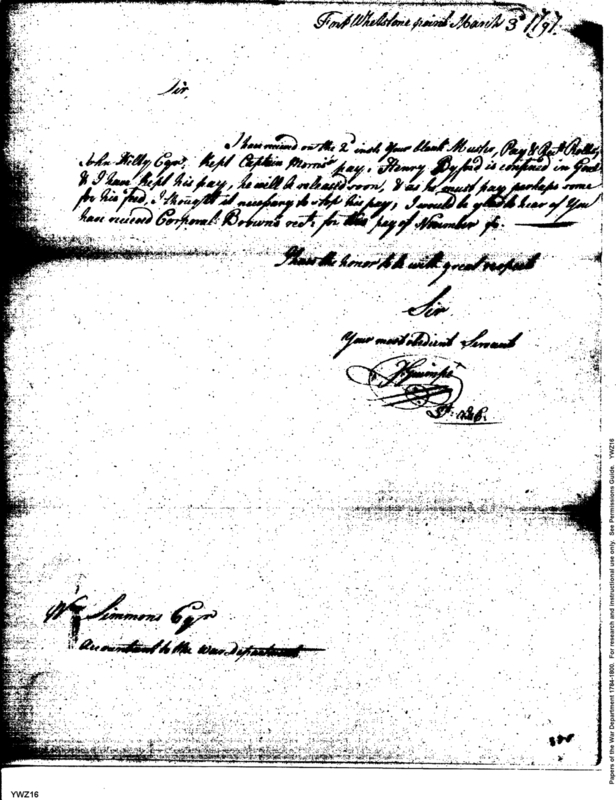 Fort Whetstone point March 3d 1797.
Sir,
I have received on the 2d inst. Your blank Muster, Pay & Rolls,
John Kilty Esqr. kept Captain Morris' pay, Henry Byford is confined in Goal
& I have kept his pay, he will be released soon, & as he must pay perhaps some
for his food, I thought it necessary to stop his pay; I would be glad to hear if You
have received Corporal Brown's rect. for this pay of November &c.
I have the honor to be with great respect
Sir
Your most obedient Servant
Wm Simmons Esqr
Accountant to the War Department
YWZ16
Papers of the War Department 1784-1800. For research and instructional use only. See Permissions Guide. YWZ16